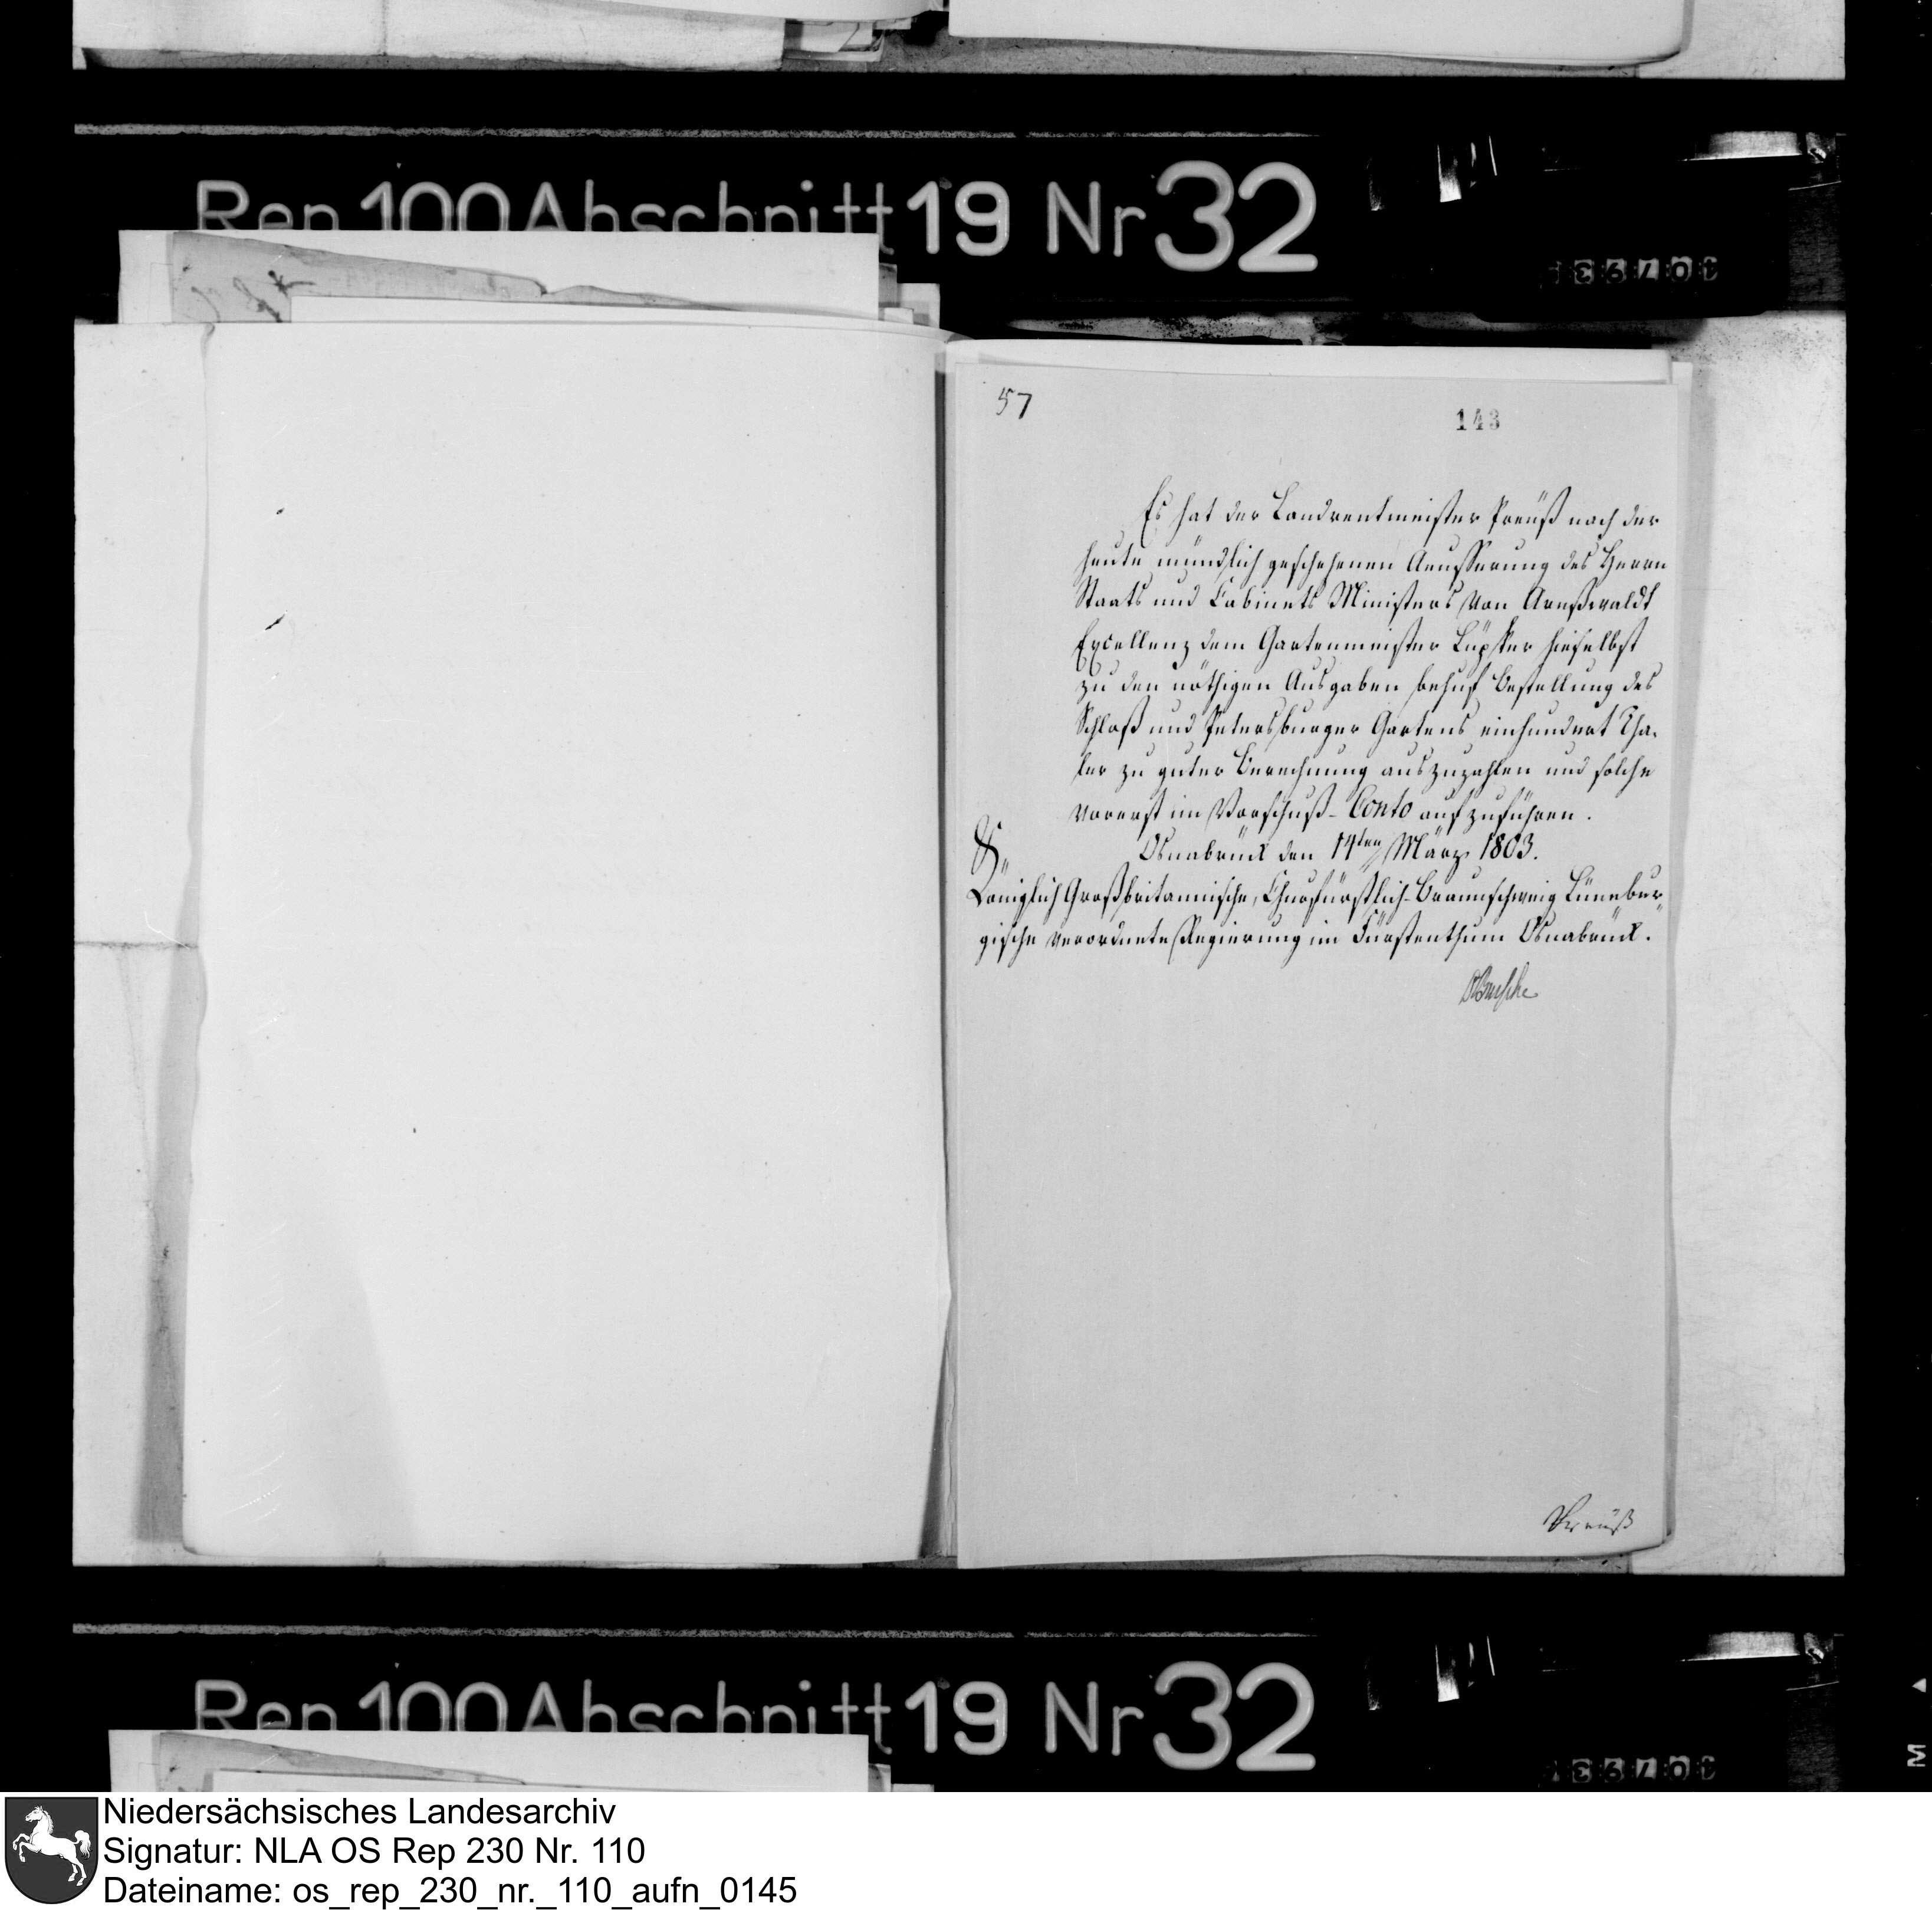 Rep 100 Abschnitt 19 Nr 32
57
143
Es hat der Landrentmeister Preuß nach der
heute mündlich geschehenen Aeusserung des Herrn
Staats und Cabinets Ministers von Arnßwaldt
Excellenz dem Gartenmeister hieselbst
zu den nöthigen Ausgaben behuf Bestellung des
Schloß und Petersburger Gartens einhundert Tha-
ler zu guter Berechnung auszuzahlen und solche
vorerst im Vorschuß-Conto aufzuführen.
Osnabrück den 14ten März 1803.
Königlich Großbritannische, Churfürstlich-Braunschweig Lünebur-
gische verordnete Regierung im Fürstenthum Osnabrück.
Busche
Preuß
Rep 100 Abschnitt 19 Nr 32
Niedersächsisches Landesarchiv
Signatur: NLA OS Rep 230 Nr. 110
Dateiname: os_rep_230_nr._110_aufn_0145